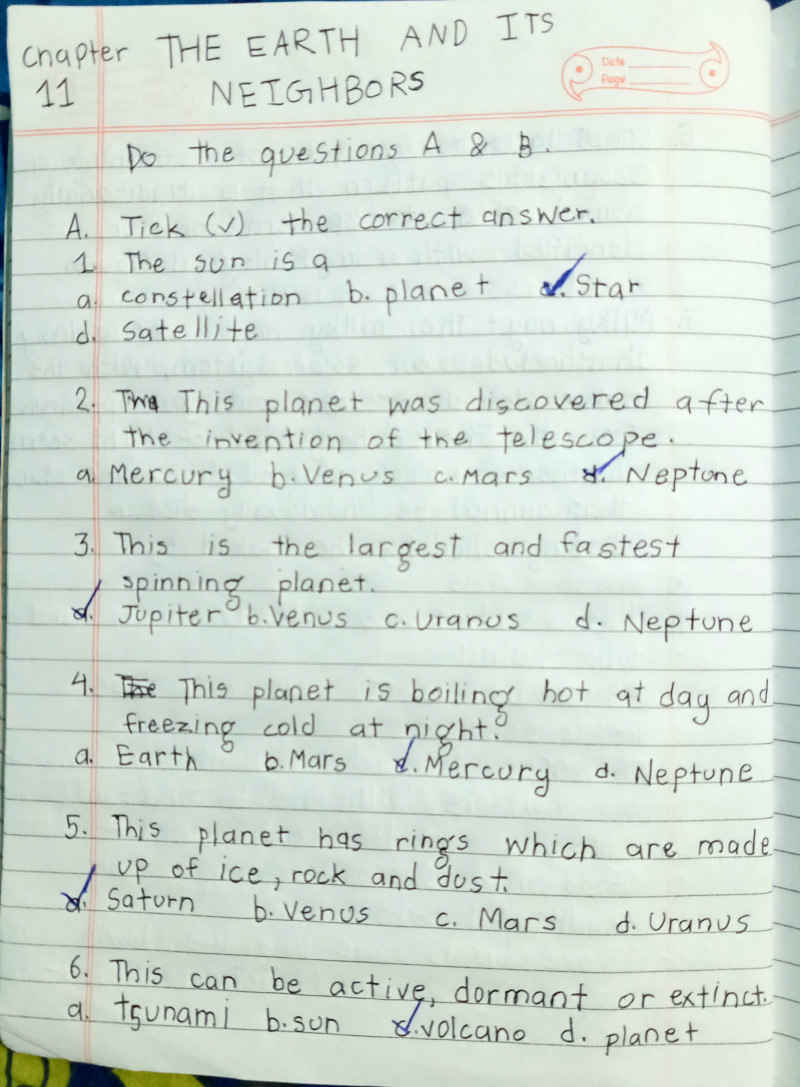 Chapter THE EARTH AND ITS
11 NEIGHBORS
Date
Page
Do the questions A & B.
A. Tick (√) the correct answer.
1. The sun is a
a. constellation b. planet c. Star
d. Satellite
2. This planet was discovered after
the invention of the telescope.
a. Mercury b. Venus c. Mars d. Neptune
3. This is the largest and fastest
spinning planet.
a. Jupiter b. Venus c. Uranus d. Neptune
4. The This planet is boiling hot at day and
freezing cold at night.
a. Earth b. Mars c. Mercury d. Neptune
5. This planet has rings which are made
up of ice, rock and dust.
a. Saturn b. Venus c. Mars d. Uranus
6. This can be active, dormant or extinct.
a. tsunami b. sun c. volcano d. planet